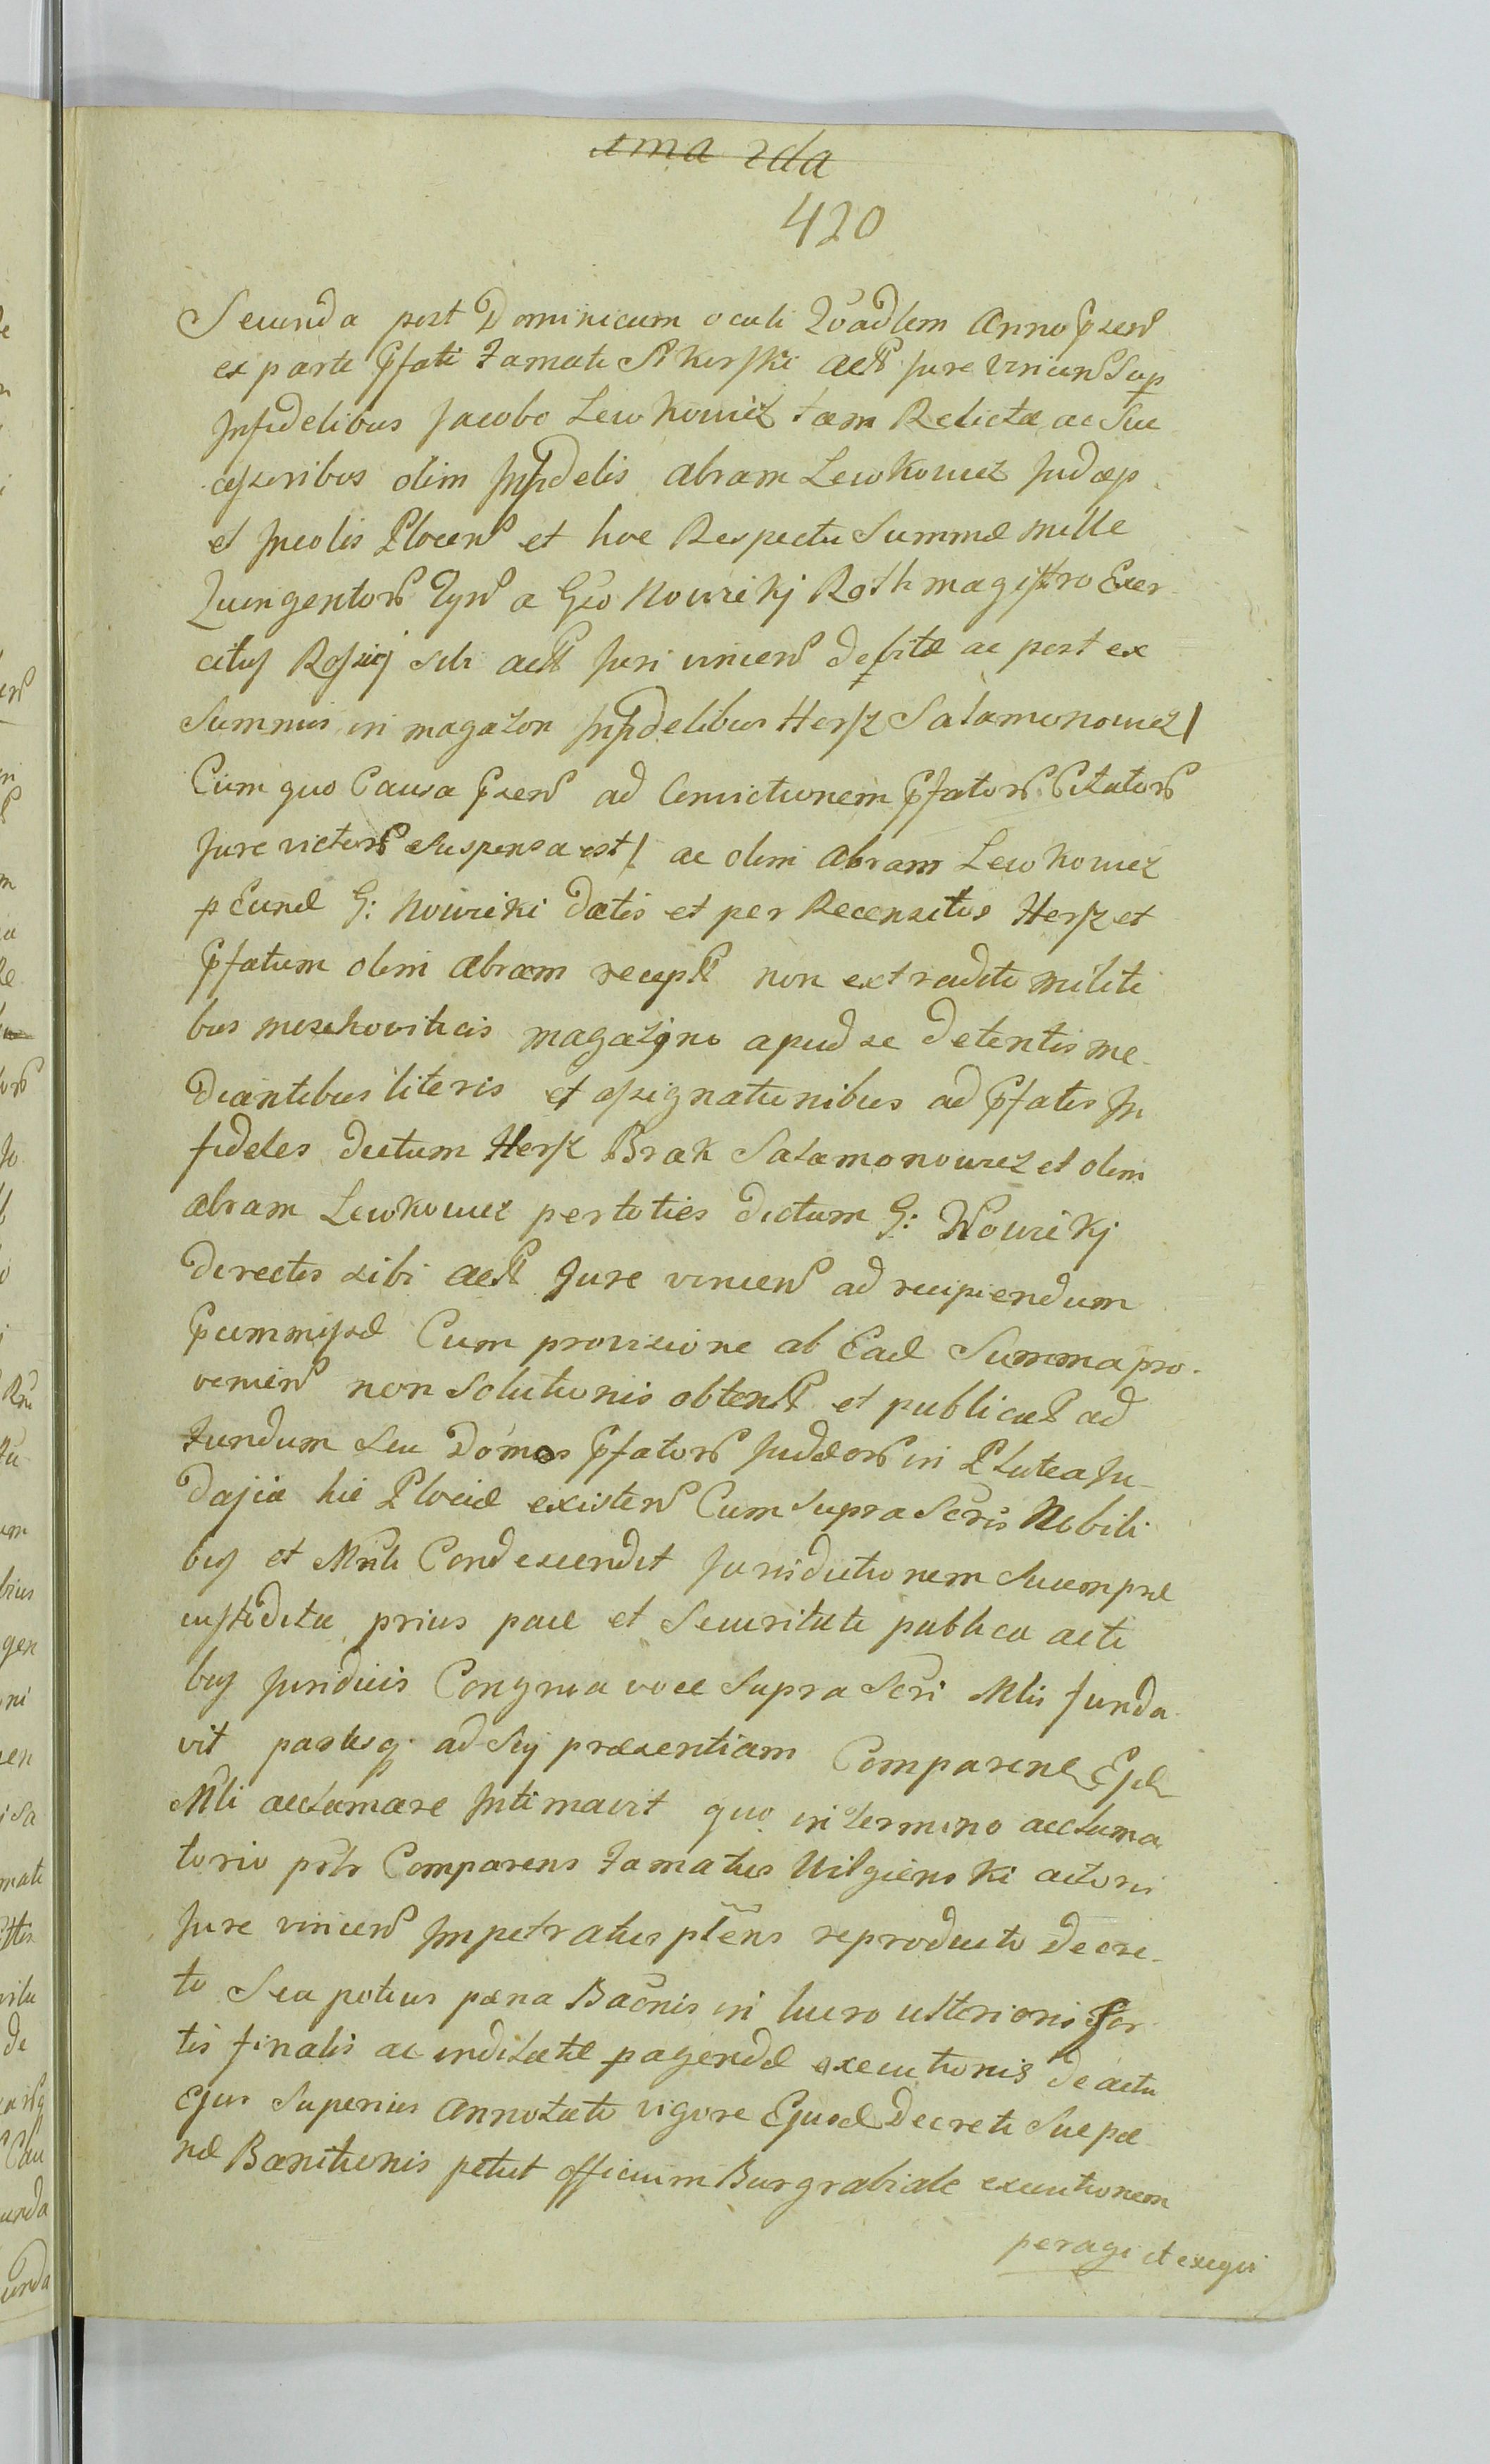 1ma 2da
420
Secunda post Dominicam oculi Quadlem Anno psen
ex parte Pfati Famati Sikorski act Jure vincen Sup
Infidelibus Jacobo Lewkowicz tam Relictæ ac Suc
cessoribus olim Infidelis Abram Lewkowicz Judæis
et Incolis Plocen et hoc Respectu Summæ mille
Quingentor Tyn a Gso Nowicki Rothmagistro Exer
citus Rossici sibi act Juri vincen debitæ ac post ex
Summis in magazon Infidelibus Hersz Salamonowicz /
Cum quo Causa psen ad Convictionem Pfator Citator
Jure victor Suspensa est / ac olim Abram Lewkowicz
p Eund G: Nowicki datis et per Recensitos Hersz et
Pfatum olim Abram recept non extraditi militi
bus moschoviticis magazino apud se detentis me-
diantibus literis et assignationibus ad Pfatos In
fideles dictum Hersz Brak Salamonowicz et olim
Abram Lewkowicz per toties dictum G: Nowickj
directis sibi act Jure vincen ad recipiendum
Cum provisione ab Ead Summa pro-
venien non Solutionis obtent et publicat ad
Fundum seu Domos Pfator Judæor in Platea Ju-
dajca hic Plociæ existen Cum supra Scris Nobili
bus et Mnli Condescendit Jurisdictionem Suamque
custodita prius pace et Securitate publica acti
bus Juridicis Congrua voce Supra Scri Mlis funda
vit partesq ad Sui præsentiam Comparend Ejd
Mli acclamare Intimavit quo in termino acclama
torio psTr Comparens Famatus Wilgienski actoris
Jure vincen Impetratus plens reproducto Decre-
to Seu potius pæna Baonis in lucro ulterioris For
tis finalis ac inditatæ pagendæ executionis de actu
Ejus Superius Annotato vigore Ejusd Decreti Sue pæ
næ Banitionis petiit officium Burgrabiale executionem
peragi et exequi